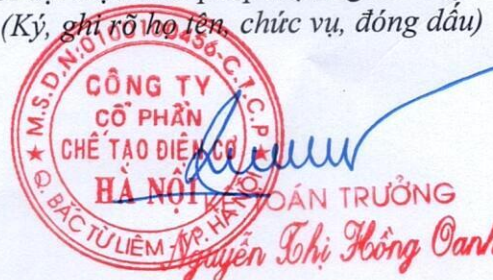 (Ký, ghi rõ họ tên, chức vụ, đóng dấu)
M.S.D.N:
C.T.C.P
CÔNG TY
CỔ PHẦN
CHẾ TẠO ĐIỆN CƠ
HÀ NỘI
Q. BẮC TỪ LIÊM - TP. HÀ NỘI
KẾ TOÁN TRƯỞNG
Nguyễn Thị Hồng Oanh